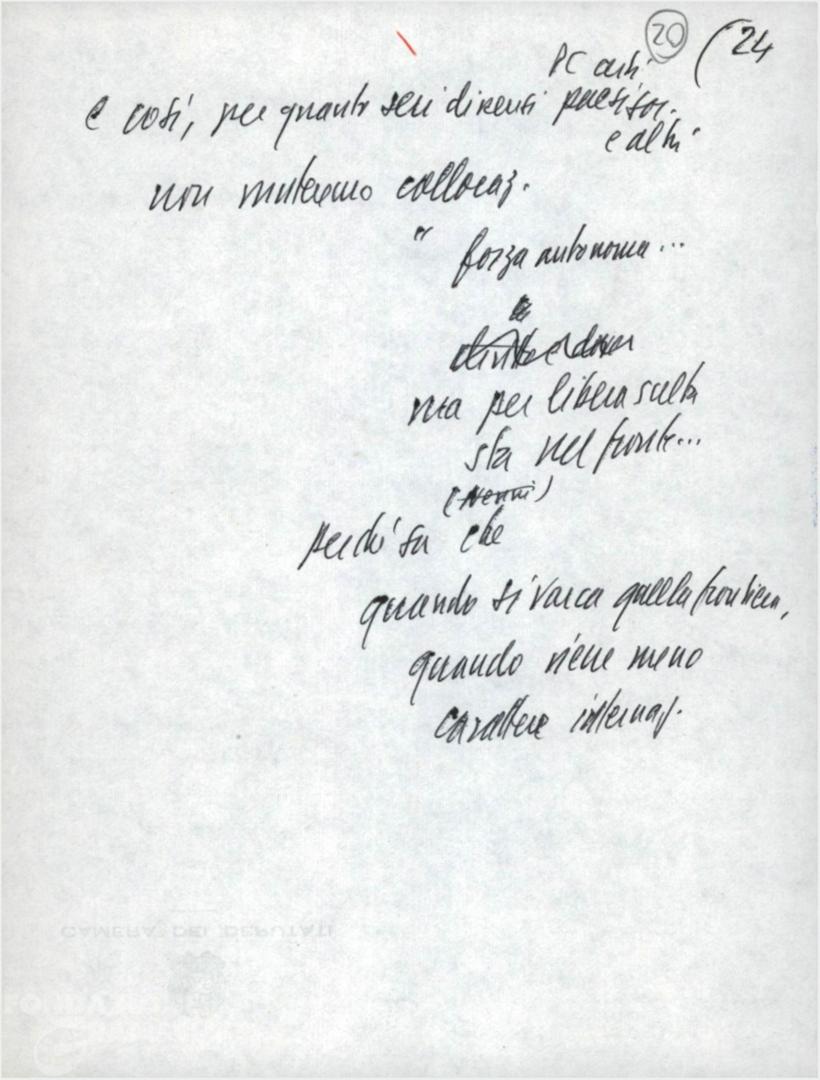 20 (24
PC
e così, per quanto seri dissensi paesi soc.
e altri
non muteremo collocaz.
" forza autonoma...
ma per libera scelta
sta nel fronte...
(Nenni)
perché sa che
quando si varca quella frontiera,
quando viene meno
carattere internaz.
CAMERA DEI DEPUTATI